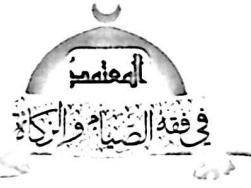 المعتمد
في فقه الصيام والزكاة